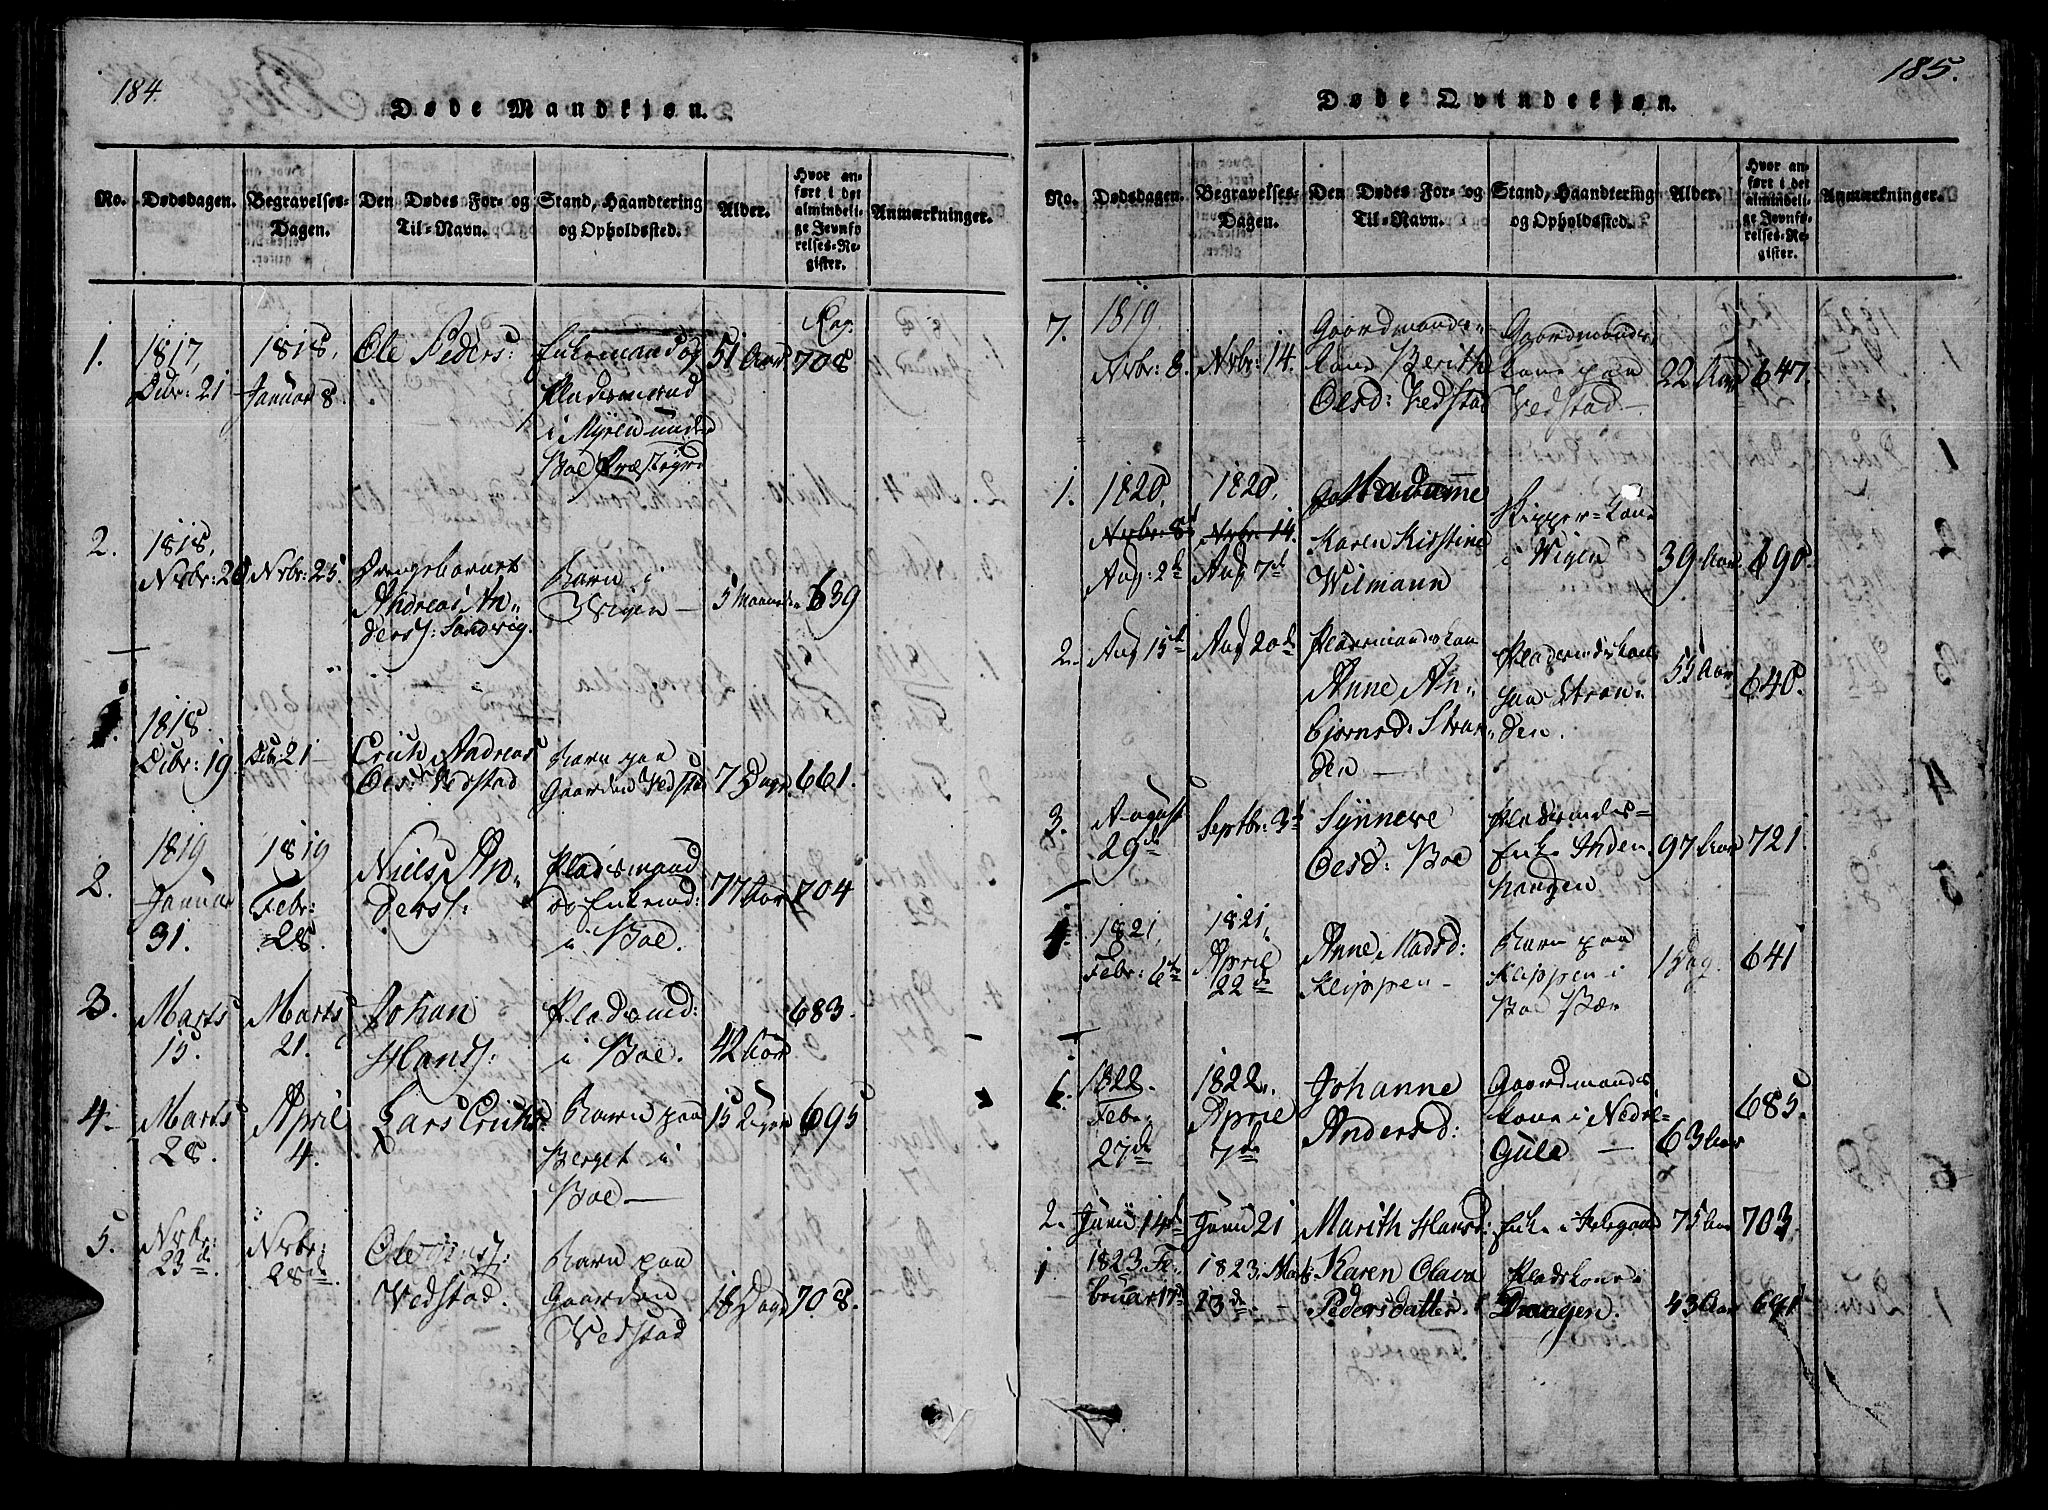 184.
Døde Mandkjøn.
No.
Dødsdagen.
Begravelses-
Dagen.
Den Dødes For- og
Til-Navn.
Stand, Haandtering
og Opholdssted.
Alder.
Hvor an-
ført i det
almindeli-
ge Jevnfø
relses-Re-
gister.
Anmærkninger.
1.
1817,
Dcbr: 21
1818,
Januar 8
Ole Peders:
Enkemand og
Pladsmand
i Myren under
Boe Præstegrd
51 Aar
Reg:
708
2.
1818,
Nvbr: 20
Nvbr: 25.
Drengebarnet
Andreas An-
ders: Sandvig.
Barn i
Wigen —
5 Maaneder
639
1818.
Dcbr: 19
Dcbr: 21
Erich Andreas
Oles: Vedstad
Barn paa
Gaarden Vedstad
7 Dage
661.
2.
1819
Januar
31.
1819
Febr:
28.
Niels An-
ders:
Pladsmand
og Enkemd:
i Boe.
77 Aar
704
3.
Marts
15.
Marts
21.
Johan
Hans:
Pladsmd:
i Boe.
42 Aar
683.
4.
Marts
28.
April
4.
Lars Erichs:
Barn paa
Berget i
Boe —
15 Uger
695
5.
Nvbr:
23de
Nvbr:
28de
Ole
Vedstad.
Barn paa
Gaarden
Vedstad
18 Dage
708.
185.
Døde Qvindekjøn.
No.
Dødsdagen.
Begravelses-
Dagen.
Den Dødes For- og
Til-Navn.
Stand, Haandtering
og Opholdssted.
Alder.
Hvor an-
ført i det
almindeli-
ge Jevnfø-
relses-Re-
gister.
Anmærkninger.
7.
1819.
Nvbr: 8.
Nvbr: 14.
Gaardmands-
kone Berith
Olesd: Vedstad
Gaardmands
kone paa
Vedstad —
22 Aar
647.
1.
1820,
Nvbr: 8
Aug: 2de
1820,
Nvbr: 14.
Aug 7de
Madame
Karen Kistine
Wilmann
Skipper-Kone
i Wigen
39 Aar
690.
2.
Aug 15de
Aug 20de
Pladsmandskone
Anne An-
bjørnsd: Stran-
den —
Pladsmdskone
paa Stran-
den.
55 Aar
640.
3.
August
29de
Septbr: 3de
Synneve
Olesd: Boe
Pladsmands-
Enke
haugen
97 Aar
721.
1.
1821,
Febr: 6te
1821,
April
22de
Anne Madsd:
Klippen —
Barn paa
Klippen i
Boe Bær
1 Dag.
641
1.
1822.
Febr:
27de
1822.
April
7de
Johanne
Andersd:
Gaardmands
kone i Nedre-
Gule —
63 Aar
685.
2.
Juni 14de
Juni 21
Marith Hansd:
Enke i
75 Aar
703
1
1823. Fe-
bruar 17de
1823. Marts
23de —
Karen Olava
Pedersdatter.
Pladskone i
Draagen.
43 Aar
691